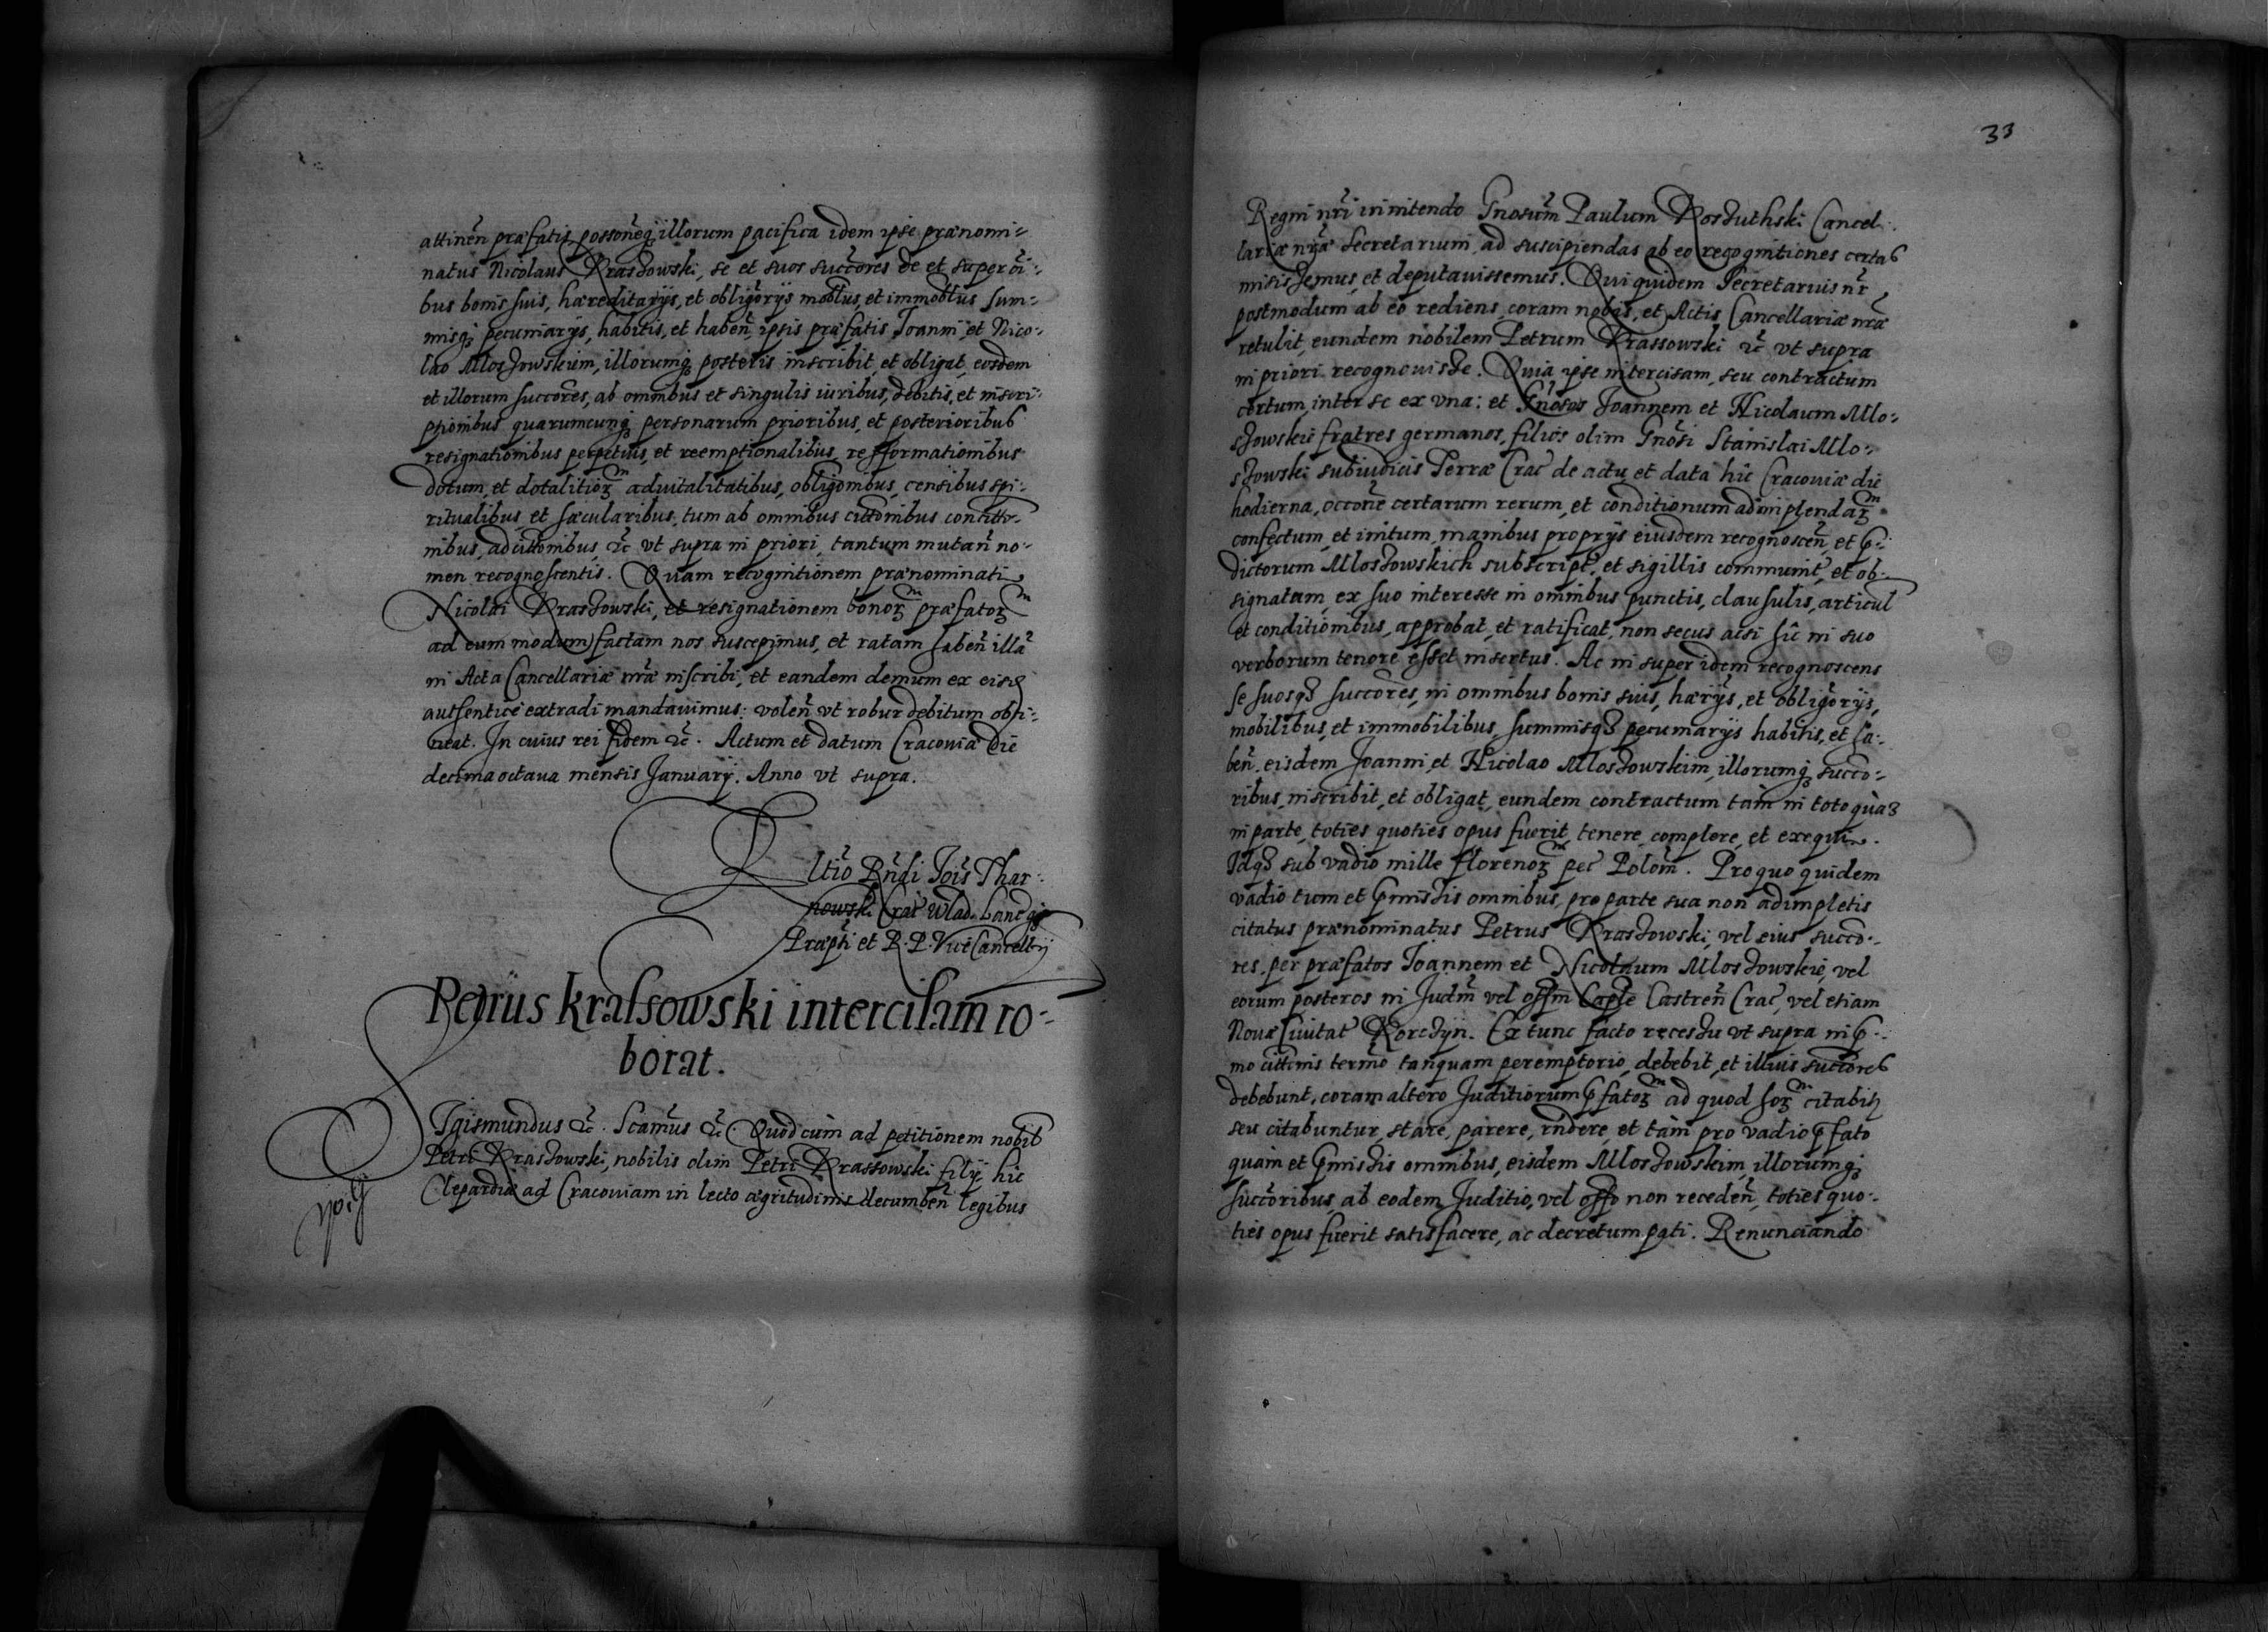 attineñ præfatis possoneq illorum pacifica idem ipse prænomi-
natus Nicolaus Krassowski, se et suos succores de et super oi-
bus bonis suis, hæreditarijs, et obligorijs moblus, et immoblus sum-
misq pecuniarijs, habitis, et habeñ, ipsis præfatis Joanni, et Nico-
lao Mlossowskim, illorumq posteris inscribit, et obligat, eosdem
et illorum succores, ab omnibus et singulis iuribus, debitis, et inscri-
ptionibus quarumcunq personarum prioribus, et posterioribus
resignationibus perpetuis, et reemptionalibus, refformationibus
dotum, et dotalitior aduitalitatibus, obligonibus, censibus spi-
ritualibus, et sæcularibus, tum ab omnibus cittonibus concitto-
nibus, adcittonibus, &c vt supra in priori, tantum mutañ no-
men recognoscentis. Quam recognitionem prænominati
Nicolai Krassowski, et resignationem bonor præfator
ad eum modum factam nos suscepimus, et ratam habeñ illa
in Acta Cancellariæ nræ inscribi, et eandem demum ex eisd
authentice extradi mandauimus: voleñ vt robur debitum obti-
neat. In cuius rei fidem &c. Actum et datum Cracouiæ die
decima octaua mensis Januarij. Anno vt supra.
Rltio Rndi Jois Thar-
nowski Crac Wlad. Lanc
Præpti et R. P. ViceCancellrij
Petrus Krassowski intercisam ro-
borat.
SIgismundus &c. Scamus &c Quod cùm ad petitionem nobil
Petri Krassowski, nobilis olim Petri Krassowski filij hic
Clepardiæ ad Cracouiam in lecto ægritudinis decumbeñ legibus
33
Regni nri innitendo Gnosum Paulum Koszuthski Cancel-
lariæ nræ Secretarium, ad suscipiendas ab eo recognitiones certas
misissemus, et deputauissemus. Qui quidem Secretarius nr
postmodum ab eo rediens, coram nobis, et Actis Cancellariæ nræ
retulit, eundem nobilem Petrum Krassowski &c vt supra
in priori recognouisse. Quia ipse intercisam, seu contractum
certum, inter se ex vna: et Gnosos Joannem et Nicolaum Mlo-
ssowskie fratres germanos, filios olim Gnosi Stanislai Mlo-
ssowski subiudicis Terræ Crac de actu, et data hîc Cracouiæ die
hodierna, occone certarum rerum, et conditionum adimplendar
confectum, et initum, manibus proprijs eiusdem recognosceñ, et p-
dictorum Mlossowskich subscript, et sigillis communit, et ob-
signatam, ex suo interesse in omnibus punctis, clausulis, articul
et conditionibus, approbat, et ratificat, non secus acsi hîc in suo
verborum tenore esset insertus. Ac insuper idem recognoscens
se suosq succores, in omnibus bonis suis, hærijs, et obligorijs,
mobilibus, et immobilibus, summisq pecuniarijs habitis, et ha-
beñ, eisdem Joanni, et Nicolao Mlossowskim, illorumq succo-
ribus, inscribit, et obligat, eundem contractum tàm in toto quàm
in parte, toties quoties opus fuerit, tenere, complere, et exequi.
Idq sub vadio mille florenor pec Polom. Pro quo quidem
vadio tum et pmissis omnibus, pro parte sua non adimpletis
citatus prænominatus Petrus Krassowski, vel eius succo-
res, per præfatos Joannem et Nicolaum Mlossowskie, vel
eorum posteros in Judm vel offm Caple Castreñ Crac, vel etiam
Nouæ Ciuitat Korczyn. Ex tunc facto recessu vt supra in p-
mo cittonis termo tanquam peremptorio, debebit, et illius succores
debebunt, coram altero Juditiorum pfator ad quod hor citabit
seu citabuntur, stare, parere, rndere, et tàm pro vadio pfato
quàm et pmissis omnibus, eisdem Mlossowskim, illorumq
succoribus, ab eodem Juditio, vel offo non recedeñ, toties quo-
ties opus fuerit satisfacere, ac decretum pati. Renunciando